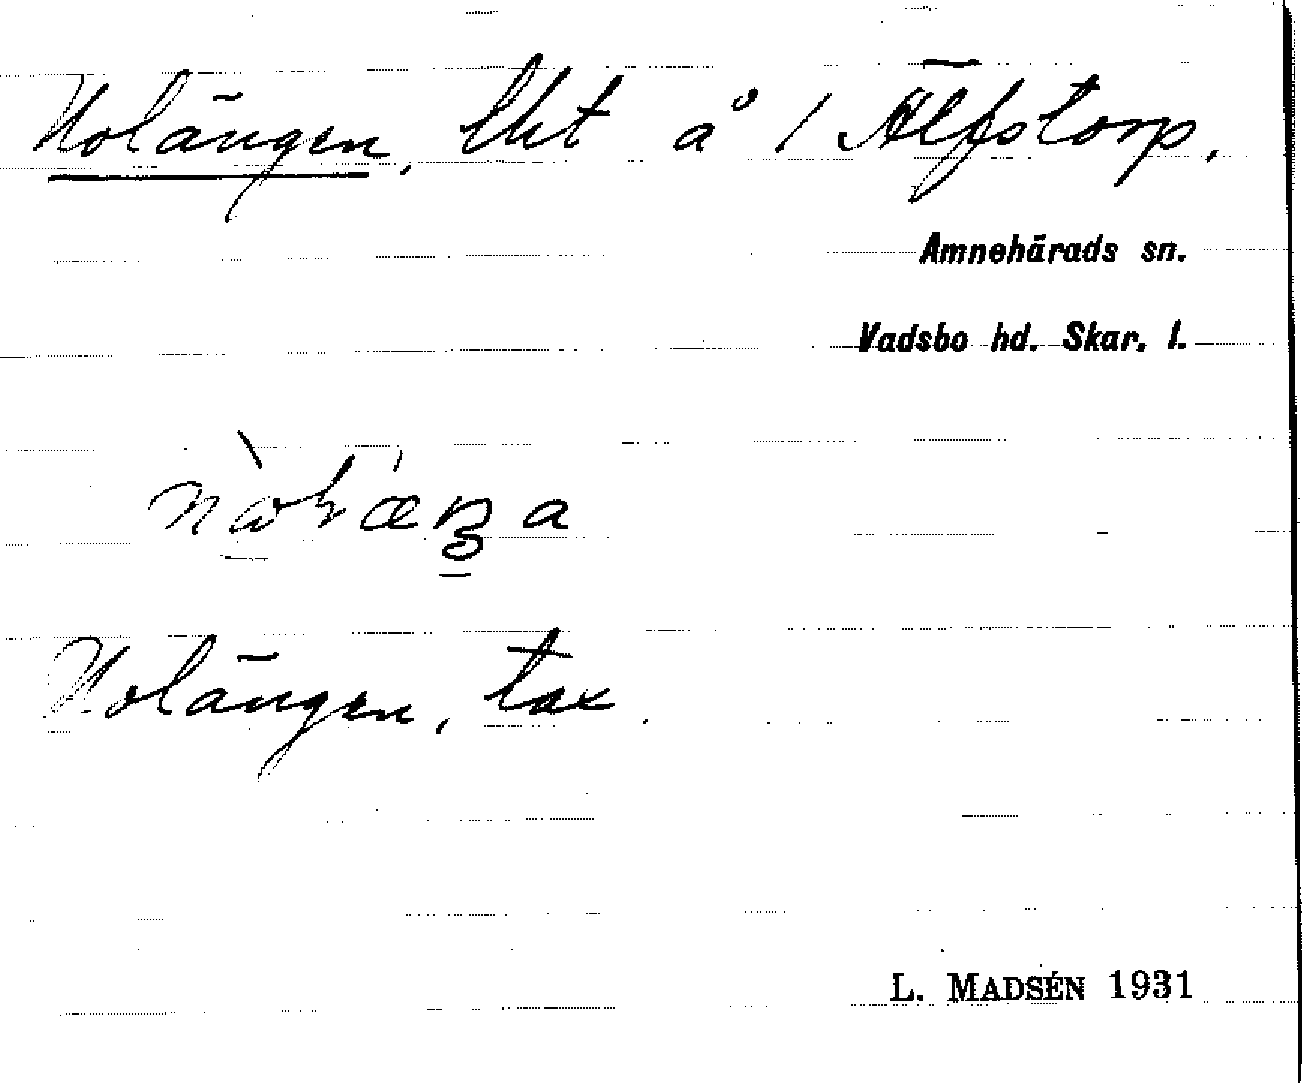 Nolängen, lht å 1 Älfstorp.
Amnehärads sn.
Vadsbo hd. Skar. l.
Nolängen, tax.
L. MADSÉN 1931